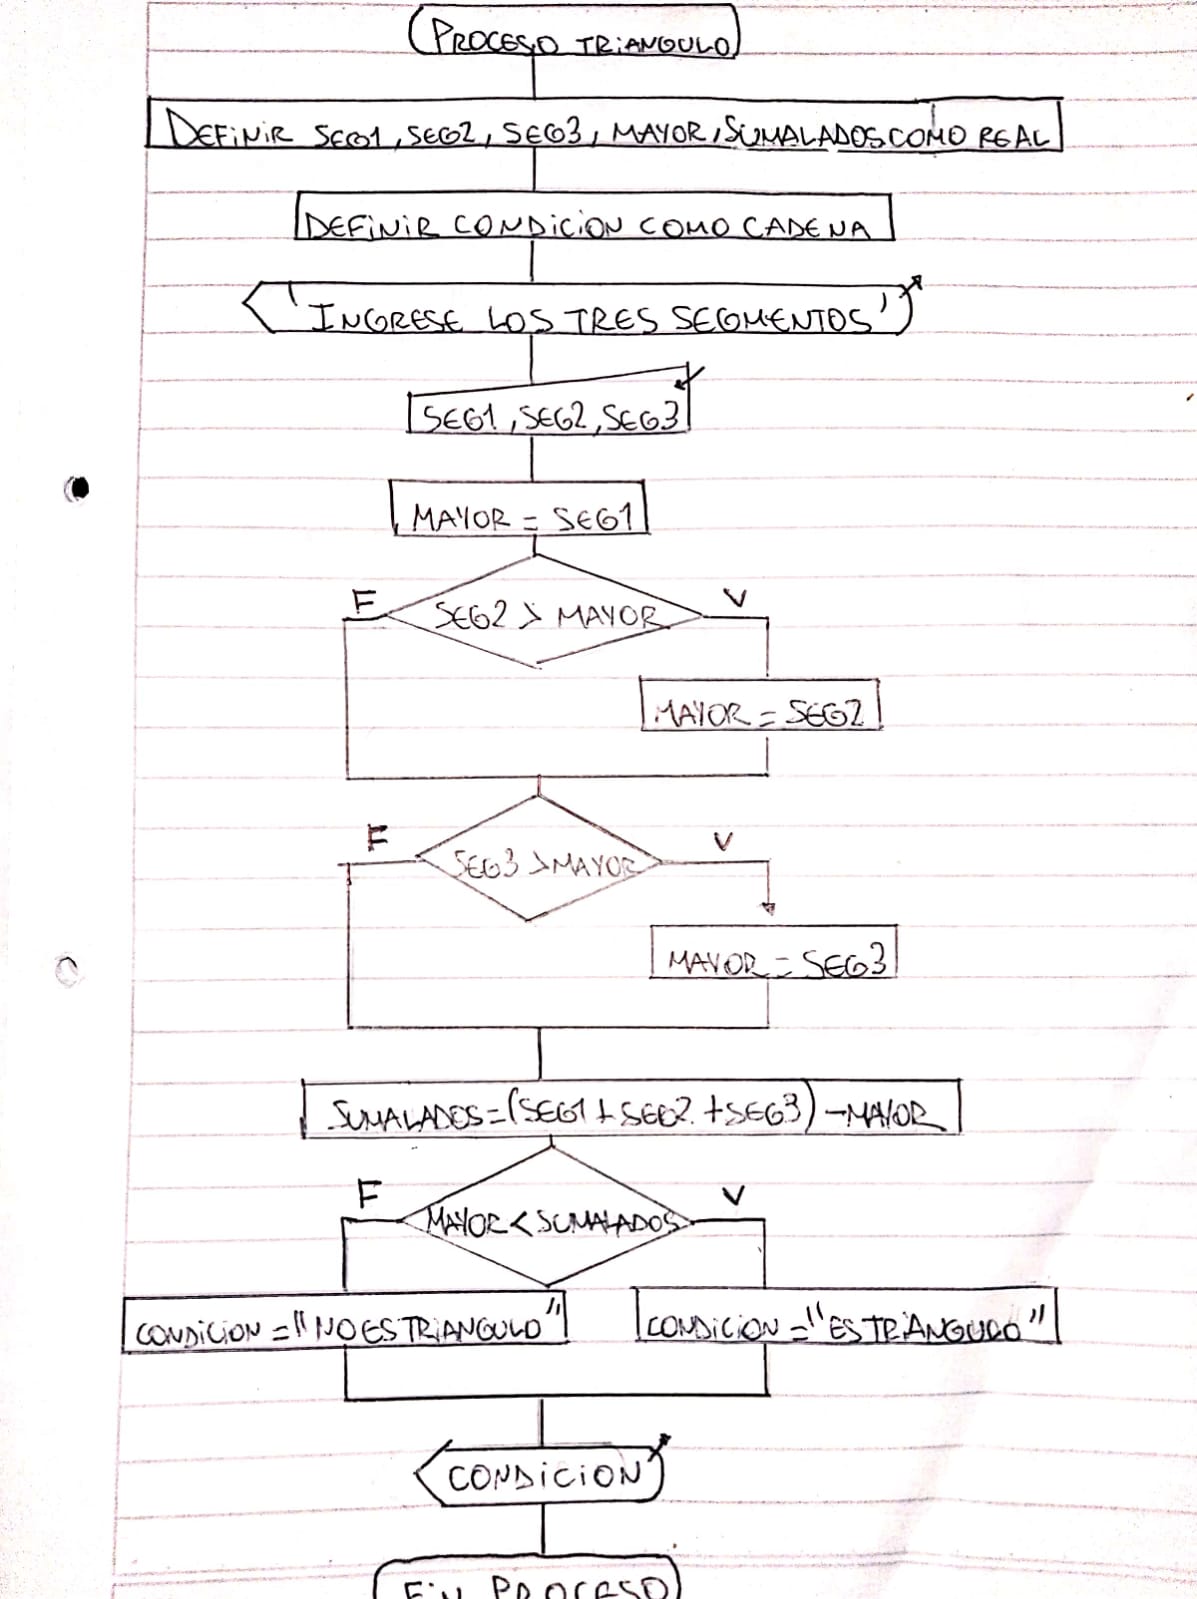 PROCESO TRiANGULO
DEFiNiR SEG1, SEG2, SEG3, MAYOR, SUMALADOS COMO REAL
DEFiNiR CONDiCiON COMO CADENA
'INGRESE LOS TRES SEGMENTOS'
SEG1, SEG2, SEG3
MAYOR = SEG1
F SEG2 > MAYOR V
MAYOR = SEG2
F SEG3 > MAYOR V
MAYOR = SEG3
SUMALADOS = (SEG1 + SEG2 + SEG3) - MAYOR
F MAYOR < SUMALADOS V
CONDiCiON = "NO ES TRiANGULO" CONDiCiON = "ES TRiANGULO"
CONDiCiON
FiN PROCESO